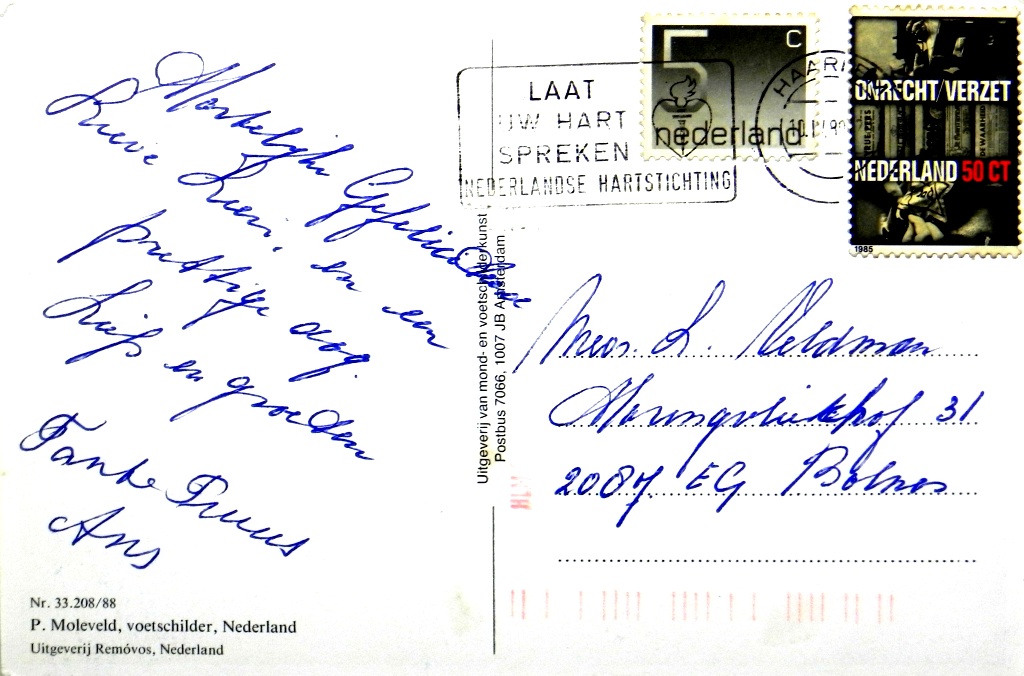 Hartelijke Gefeliciteerd
Lieve Lien, en een
prettige dag.
Liefs en groeten
Tante Truus
Ans
Nr. 33.208/88
P. Moleveld, voetschilder, Nederland
Uitgeverij Removos, Nederland
Uitgeverij van mond- en voetschilderkunst
Postbus 7066, 1007 JB Amsterdam
LAAT
UW HART
SPREKEN
NEDERLANDSE HARTSTICHTING
5 C
nederland
HAARLEM
ONRECHT/VERZET
NEDERLAND 50 CT
1985
Mevr. L. Veldman
31
EG Bolnes